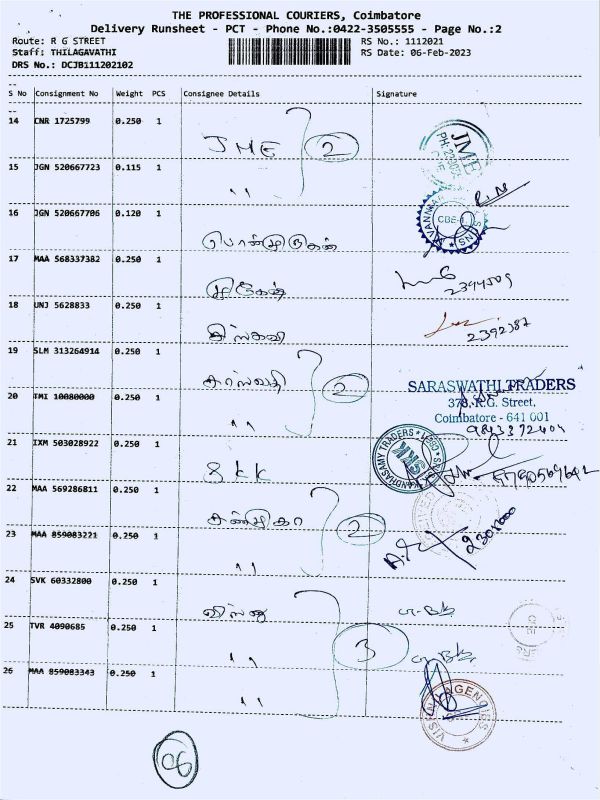 THE PROFESSIONAL COURIERS, Coimbatore
Delivery Runsheet - PCT - Phone No.:0422-3505555 - Page No.:2
Route: R G STREET
RS No.: 1112021
Staff: THILAGAVATHI
RS Date: 06-Feb-2023
DRS No.: DCJB111202102
S No Consignment No Weight PCS Consignee Details Signature
14 CNR 1725799 0.250 1
JME 2
JME
15 JGN 520667723 0.115 1
"
16 JGN 520667706 0.120 1
CBE-1
பொன்முருகன்
17 MAA 568337382 0.250 1
முருகேஷ்
18 UNJ 5628833 0.250 1
2392387
19 SLM 313264914 0.250 1
சரஸ்வதி 2
SARASWATHI TRADERS
378, R.G. Street,
Coimbatore - 641 001
20 TMI 10080000 0.250 1
"
9843372404
21 IXM 503028922 0.250 1
SKK
KANDHASAMY TRADERS
SKK
22 MAA 569286811 0.250 1
2
23 MAA 859083221 0.250 1
"
24 SVK 60332800 0.250 1
25 TVR 4090685 0.250 1
" 3
26 MAA 859083343 0.250 1
"
AGENCIES
06